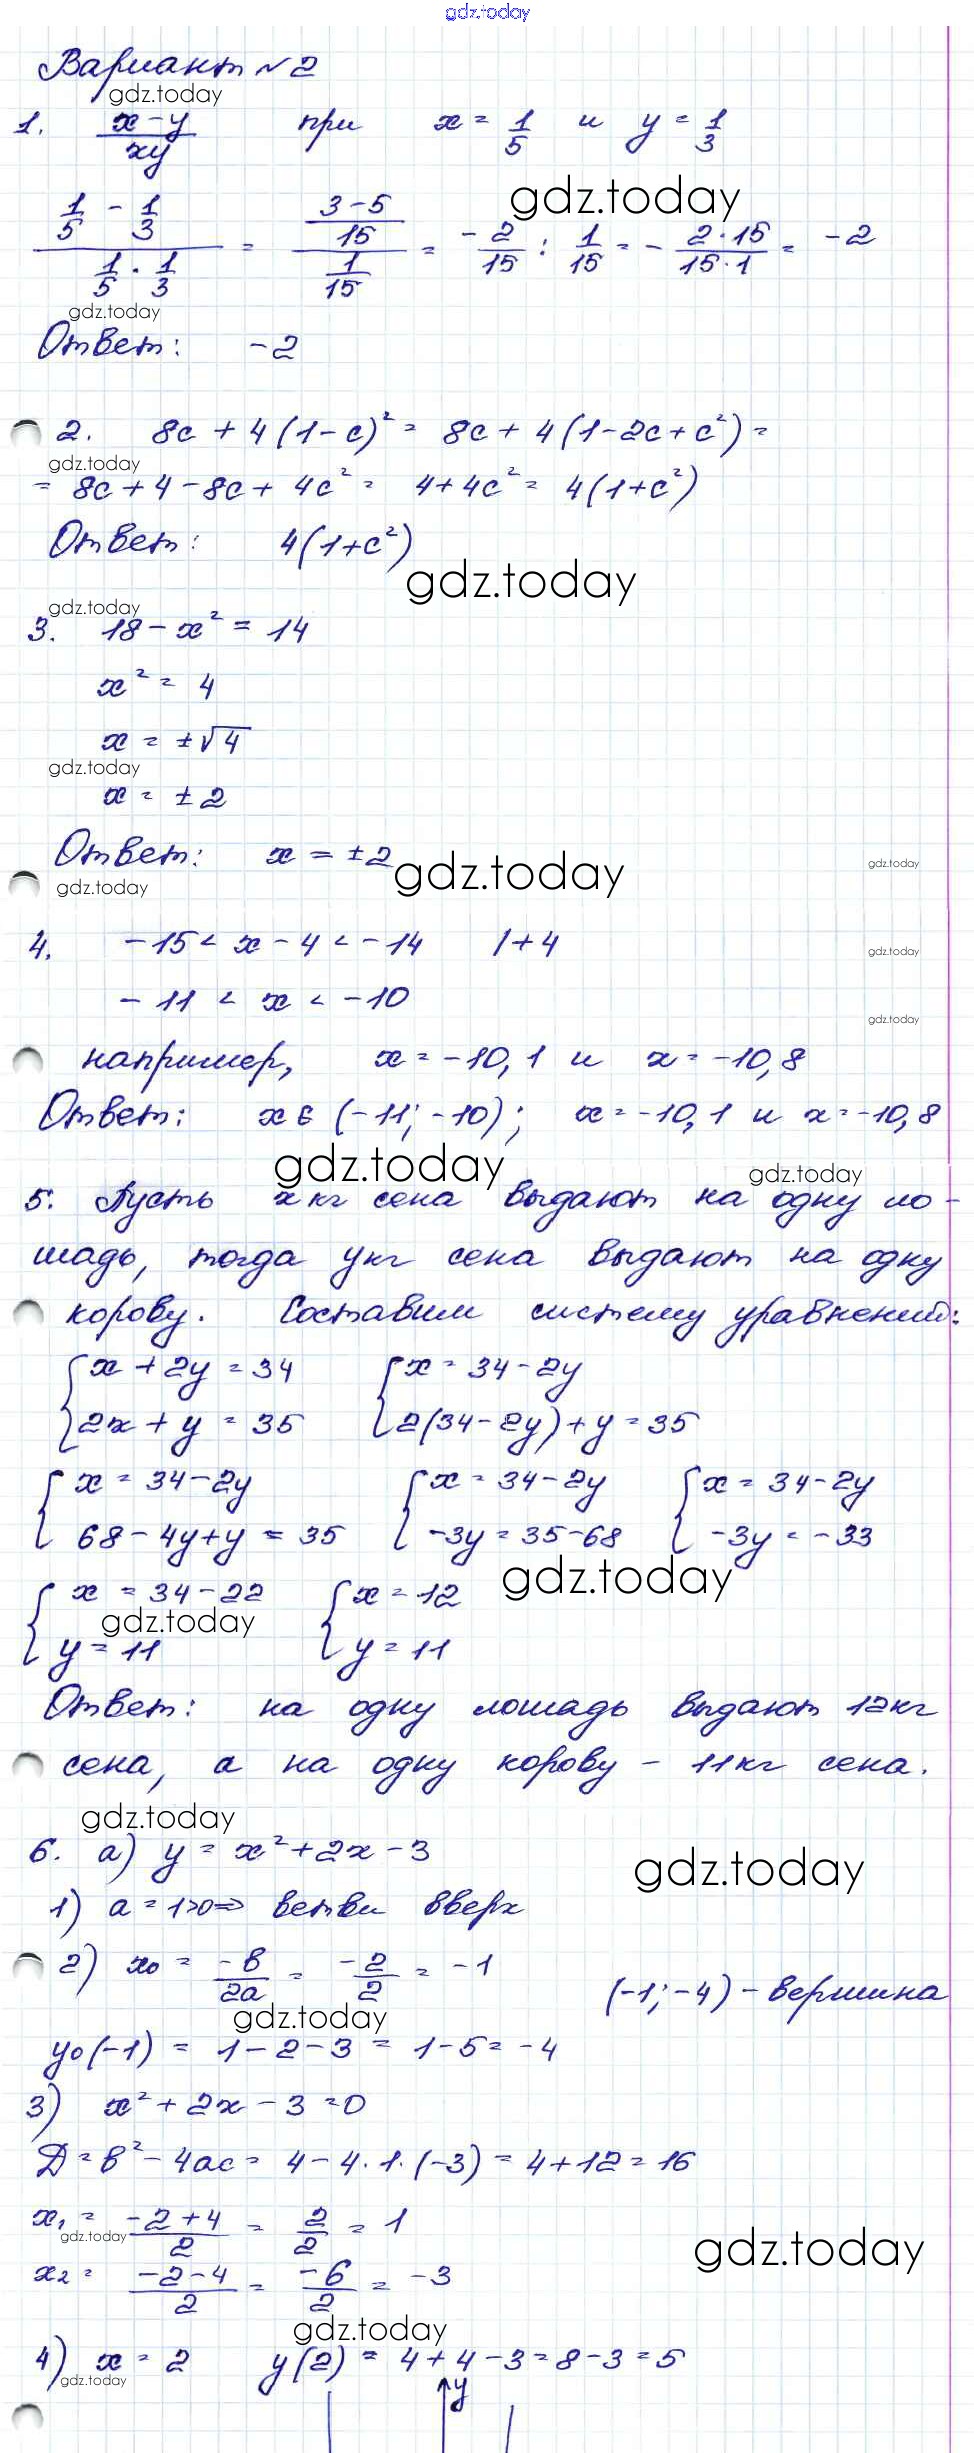 gdz.today
Вариант №2
gdz.today
1. (x-y)/(xy) при x = 1/5 и y = 1/3
gdz.today
(1/5 - 1/3)/(1/5 · 1/3) = ((3-5)/15)/(1/15) = -2/15 : 1/15 = - (2·15)/(15·1) = -2
gdz.today
Ответ: -2
2. 8c + 4(1-c)² = 8c + 4(1-2c+c²) =
gdz.today
= 8c + 4 - 8c + 4c² = 4+4c² = 4(1+c²)
Ответ: 4(1+c²)
gdz.today
gdz.today
3. 18 - x² = 14
x² = 4
x = ±√4
gdz.today
x = ±2
Ответ: x = ±2
gdz.today
gdz.today
gdz.today
4. -15 < x - 4 < -14 | +4
gdz.today
-11 < x < -10
gdz.today
например, x = -10,1 и x = -10,8
Ответ: x ∈ (-11; -10); x = -10,1 и x = -10,8
gdz.today
gdz.today
5. Пусть x кг сена выдают на одну ло-
шадь, тогда y кг сена выдают на одну
корову. Составим систему уравнений:
{x + 2y = 34 {x = 34 - 2y
{2x + y = 35 {2(34 - 2y) + y = 35
{x = 34 - 2y {x = 34 - 2y {x = 34 - 2y
{68 - 4y + y = 35 {-3y = 35 - 68 {-3y = -33
gdz.today
{x = 34 - 22 {x = 12
gdz.today
{y = 11 {y = 11
Ответ: на одну лошадь выдают 12 кг
сена, а на одну корову - 11 кг сена.
gdz.today
6. а) y = x² + 2x - 3
gdz.today
1) a = 1 > 0 => ветви вверх
2) x₀ = -b/2a = -2/2 = -1
(-1; -4) - вершина
gdz.today
y₀(-1) = 1 - 2 - 3 = 1 - 5 = -4
3) x² + 2x - 3 = 0
Д = b² - 4ac = 4 - 4·1·(-3) = 4 + 12 = 16
x₁ = (-2+4)/2 = 2/2 = 1
gdz.today
gdz.today
x₂ = (-2-4)/2 = -6/2 = -3
gdz.today
4) x = 2 y(2) = 4 + 4 - 3 = 8 - 3 = 5
gdz.today
y